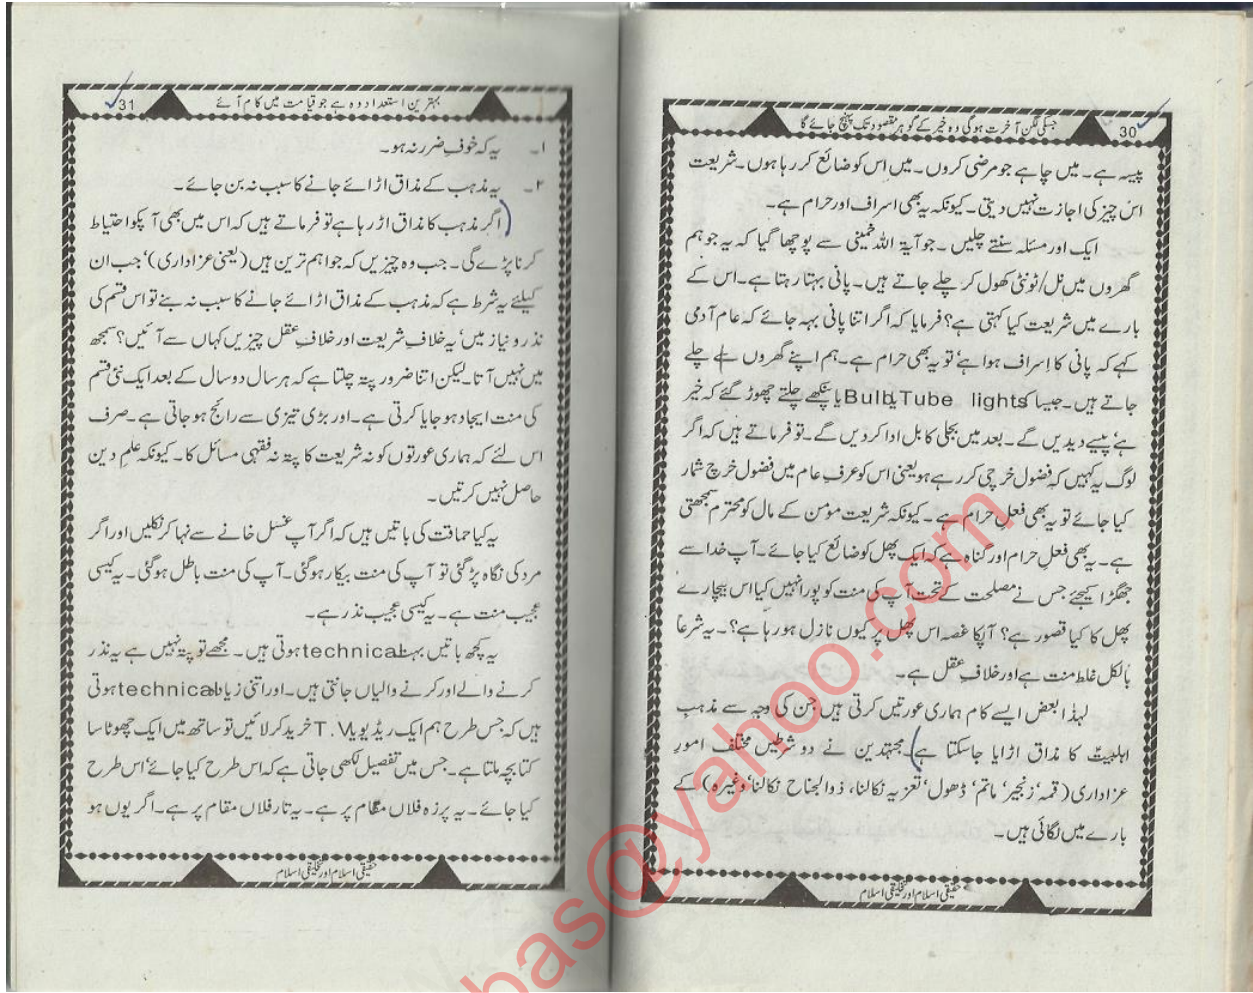 30 جسکی لگن آخرت ہوگی وہ خیر کے گوہر مقصود تک پہنچ جائے گا
پیسہ ہے۔ میں چاہے جو مرضی کروں۔ میں اس کو ضائع کر رہا ہوں۔ شریعت
اس چیز کی اجازت نہیں دیتی۔ کیونکہ یہ بھی اسراف اور حرام ہے۔
ایک اور مسئلہ سنتے چلیں۔ جو آیۃ اللہ خمینی سے پوچھا گیا کہ یہ جو ہم
گھروں میں نل/ٹونٹی کھول کر چلے جاتے ہیں۔ پانی بہتا رہتا ہے۔ اس کے
بارے میں شریعت کیا کہتی ہے؟ فرمایا کہ اگر اتنا پانی بہہ جائے کہ عام آدمی
کہے کہ پانی کا اِسراف ہوا ہے‘ تو یہ بھی حرام ہے۔ ہم اپنے گھروں سے چلے
جاتے ہیں۔ جیسا کہ Tube lights یا Bulb یا پنکھے چلتے چھوڑ گئے کہ خیر
ہے‘ پیسے دیدیں گے۔ بعد میں بجلی کا بل ادا کر دیں گے۔ تو فرماتے ہیں کہ اگر
لوگ یہ کہیں کہ فضول خرچی کر رہے ہو یعنی اس کو عرفِ عام میں فضول خرچ شمار
کیا جائے تو یہ بھی فعلِ حرام ہے۔ کیونکہ شریعت مومن کے مال کو محترم سمجھتی
ہے۔ یہ بھی فعلِ حرام اور گناہ ہے کہ ایک پھل کو ضائع کیا جائے۔ آپ خدا سے
جھگڑا کیجئے جس نے مصلحت کے تحت آپ کی منت کو پورا نہیں کیا اس بیچارے
پھل کا کیا قصور ہے؟ آپکا غصہ اس پھل پر کیوں نازل ہو رہا ہے؟۔ یہ شرعاً
بالکل غلط منت ہے اور خلافِ عقل ہے۔
لہذا بعض ایسے کام ہماری عورتیں کرتی ہیں جن کی وجہ سے مذہبِ
اہلبیتؑ کا مذاق اڑایا جا سکتا ہے) مجتہدین نے دو شرطیں مختلف امورِ
عزاداری (قمہ‘ زنجیر‘ ماتم‘ ڈھول‘ تعزیہ نکالنا، ذوالجناح نکالنا‘ وغیرہ) کے
بارے میں لگائی ہیں۔
حقیقی اسلام اور تخلیقی اسلام
31 بہترین استعداد وہ ہے جو قیامت میں کام آئے
۱۔ یہ کہ خوفِ ضرر نہ ہو۔
۲۔ یہ مذہب کے مذاق اڑائے جانے کا سبب نہ بن جائے۔
(اگر مذہب کا مذاق اڑ رہا ہے تو فرماتے ہیں کہ اس میں بھی آپکو احتیاط
کرنا پڑے گی۔ جب وہ چیزیں کہ جو اہم ترین ہیں (یعنی عزاداری)‘ جب ان
کیلئے یہ شرط ہے کہ مذہب کے مذاق اڑائے جانے کا سبب نہ بنے تو اس قسم کی
نذر و نیاز میں‘ یہ خلافِ شریعت اور خلافِ عقل چیزیں کہاں سے آئیں؟ سمجھ
میں نہیں آتا۔ لیکن اتنا ضرور پتہ چلتا ہے کہ ہر سال دو سال کے بعد ایک نئی قسم
کی منت ایجاد ہو جایا کرتی ہے۔ اور بڑی تیزی سے رائج ہو جاتی ہے۔ صرف
اس لئے کہ ہماری عورتوں کو نہ شریعت کا پتہ نہ فقہی مسائل کا۔ کیونکہ علمِ دین
حاصل نہیں کرتیں۔
یہ کیا حماقت کی باتیں ہیں کہ اگر آپ غسل خانے سے نہا کر نکلیں اور اگر
مرد کی نگاہ پڑ گئی تو آپ کی منت بیکار ہو گئی۔ آپ کی منت باطل ہو گئی۔ یہ کیسی
عجیب منت ہے۔ یہ کیسی عجیب نذر ہے۔
یہ کچھ باتیں بہت technical ہوتی ہیں۔ مجھے تو پتہ نہیں ہے یہ نذر
کرنے والے اور کرنے والیاں جانتی ہیں۔ اور اتنی زیادہ technical ہوتی
ہیں کہ جس طرح ہم ایک ریڈیو یا T.V خرید کر لائیں تو ساتھ میں ایک چھوٹا سا
کتابچہ ملتا ہے۔ جس میں تفصیل لکھی جاتی ہے کہ اس طرح کیا جائے‘ اس طرح
کیا جائے۔ یہ پرزہ فلاں مقام پر ہے۔ یہ تار فلاں مقام پر ہے۔ اگر یوں ہو
حقیقی اسلام اور تخلیقی اسلام
bas@yahoo.com